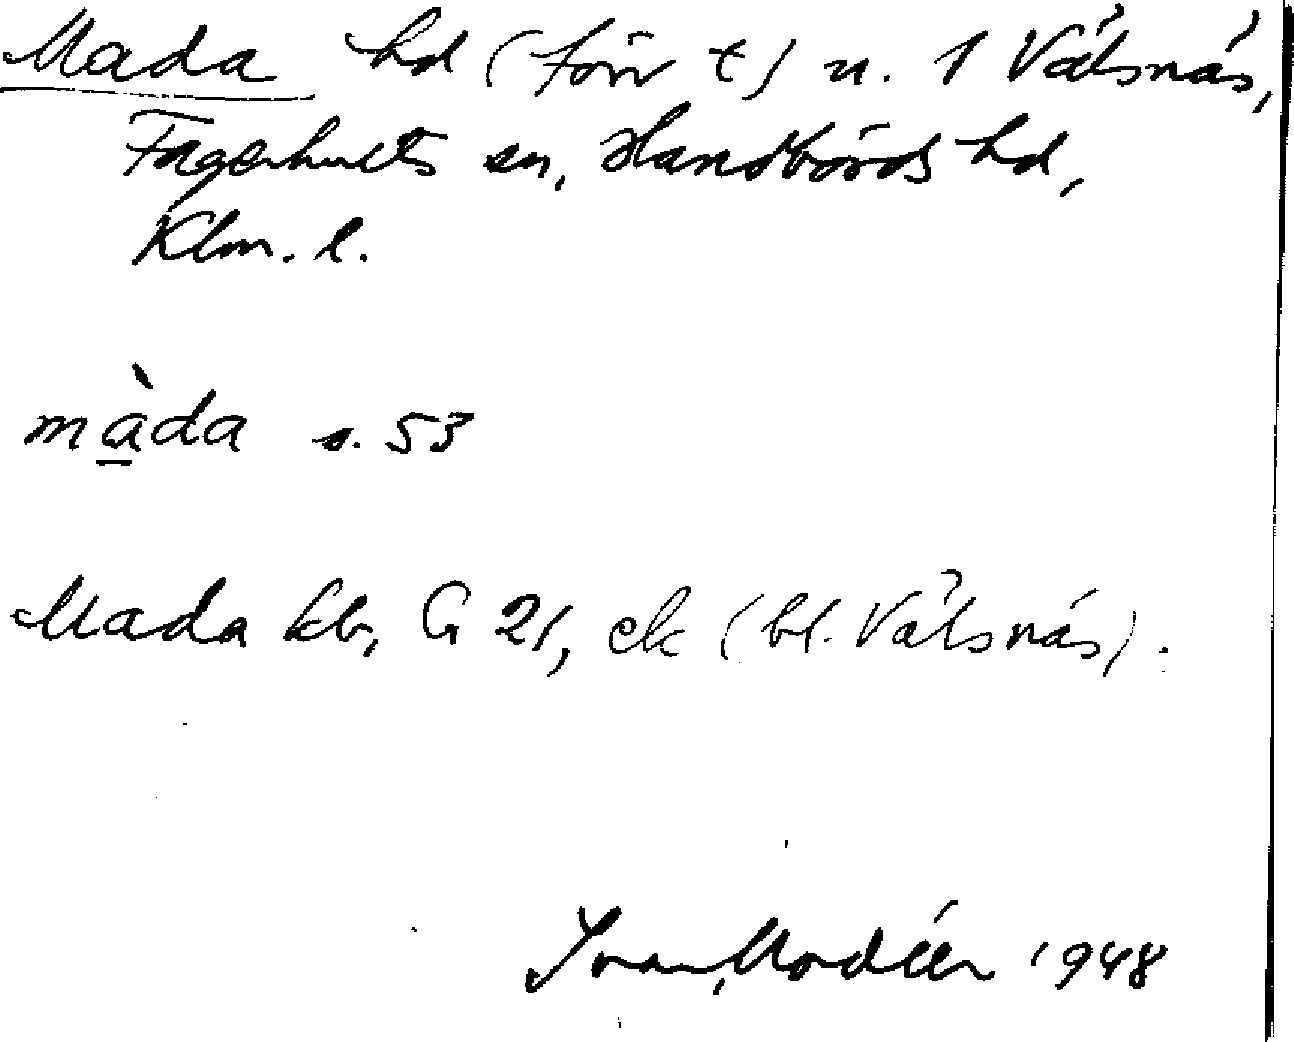 Mada hd (förr t) u. 1 Välsnäs,
Fagerhults sn, Handbörds hd,
Klm. l.
màda s. 53
Mada kb, G 21, ek (bl. Välsnäs).
Ivar Modéer 1948